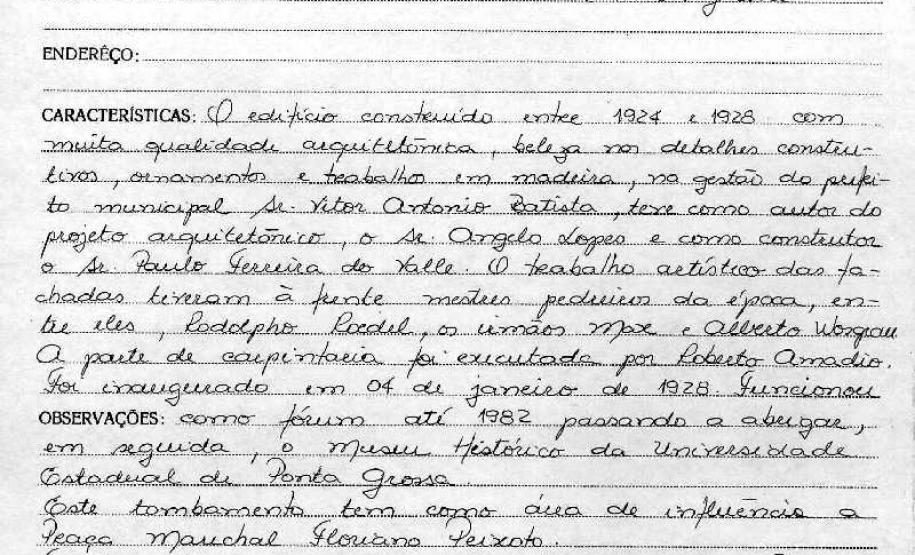 ENDERÊÇO:
CARACTERÍSTICAS: O edifício construído entre 1924 e 1928 com
muita qualidade arquitetônica, beleza nos detalhes constru-
tivos, ornamentos e trabalho em madeira, na gestão do prefei-
to municipal Sr. Vitor Antonio Batista, teve como autor do
projeto arquitetônico, o Sr. Angelo Lopes e como construtor
o Sr. Paulo Ferreira do Valle. O trabalho artístico das fa-
chadas tiveram à frente mestres pedreiros da época, en-
tre eles, Rodolpho Roedel, os irmãos Max e Alberto
A parte de carpintaria foi executada por Roberto Amadio.
Foi inaugurado em 04 de janeiro de 1928. Funcionou
OBSERVAÇÕES: como fórum até 1982 passando a abrigar,
em seguida, o Museu Histórico da Universidade
Estadual de Ponta Grossa.
Este tombamento tem como área de influência a
Praça Marechal Floriano Peixoto.